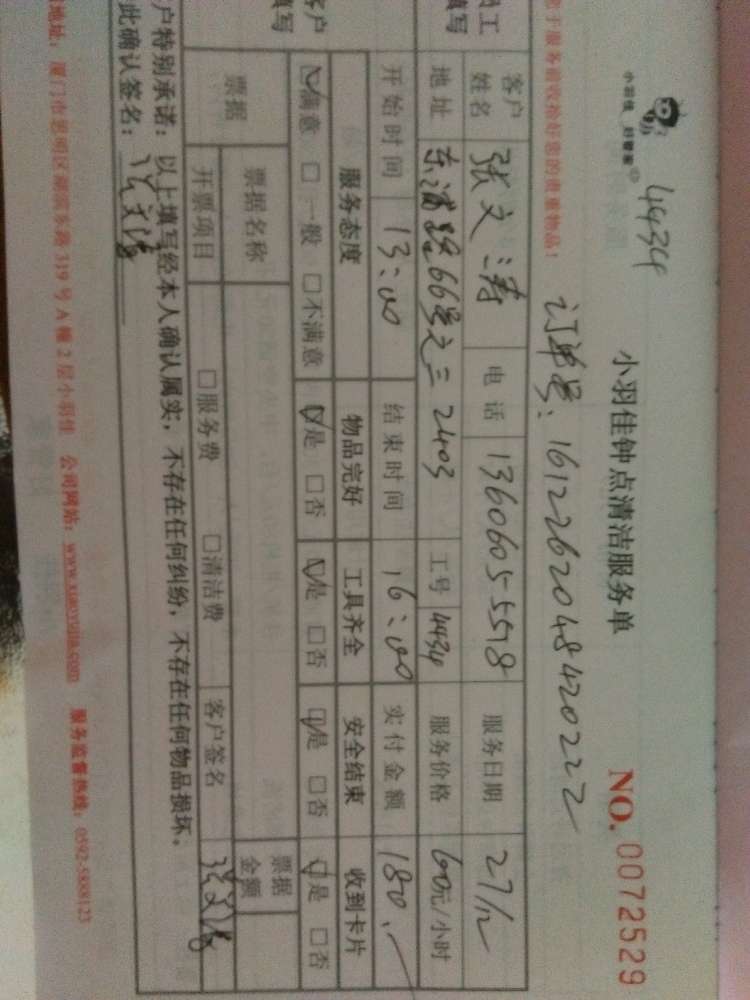 小羽佳 好管家
4434
小羽佳钟点清洁服务单
NO. 0072529
订单号: 161226204842022Z
于服务前收拾好您的贵重物品!
员工 填写
客户姓名 张文涛 电话 13606055518 服务日期 27/12
地址 东浦路66号之三 2403 工号 4434 服务价格 60元/小时
开始时间 13:00 结束时间 16:00 实付金额 180.
客户 填写
服务态度 物品完好 工具齐全 安全结束 收到卡片
☑满意 □一般 □不满意 ☑是 □否 ☑是 □否 ☑是 □否 ☑是 □否
票据 票据名称 票据金额
开票项目 □服务费 □清洁费 客户签名 张文涛
户特别承诺: 以上填写经本人确认属实,不存在任何纠纷,不存在任何物品损坏。
此确认签名: 张文涛
地址: 厦门市思明区湖滨东路319号A幢2层小羽佳 公司网站: www.xiaoyujia.com 服务监督热线: 0592-5888123